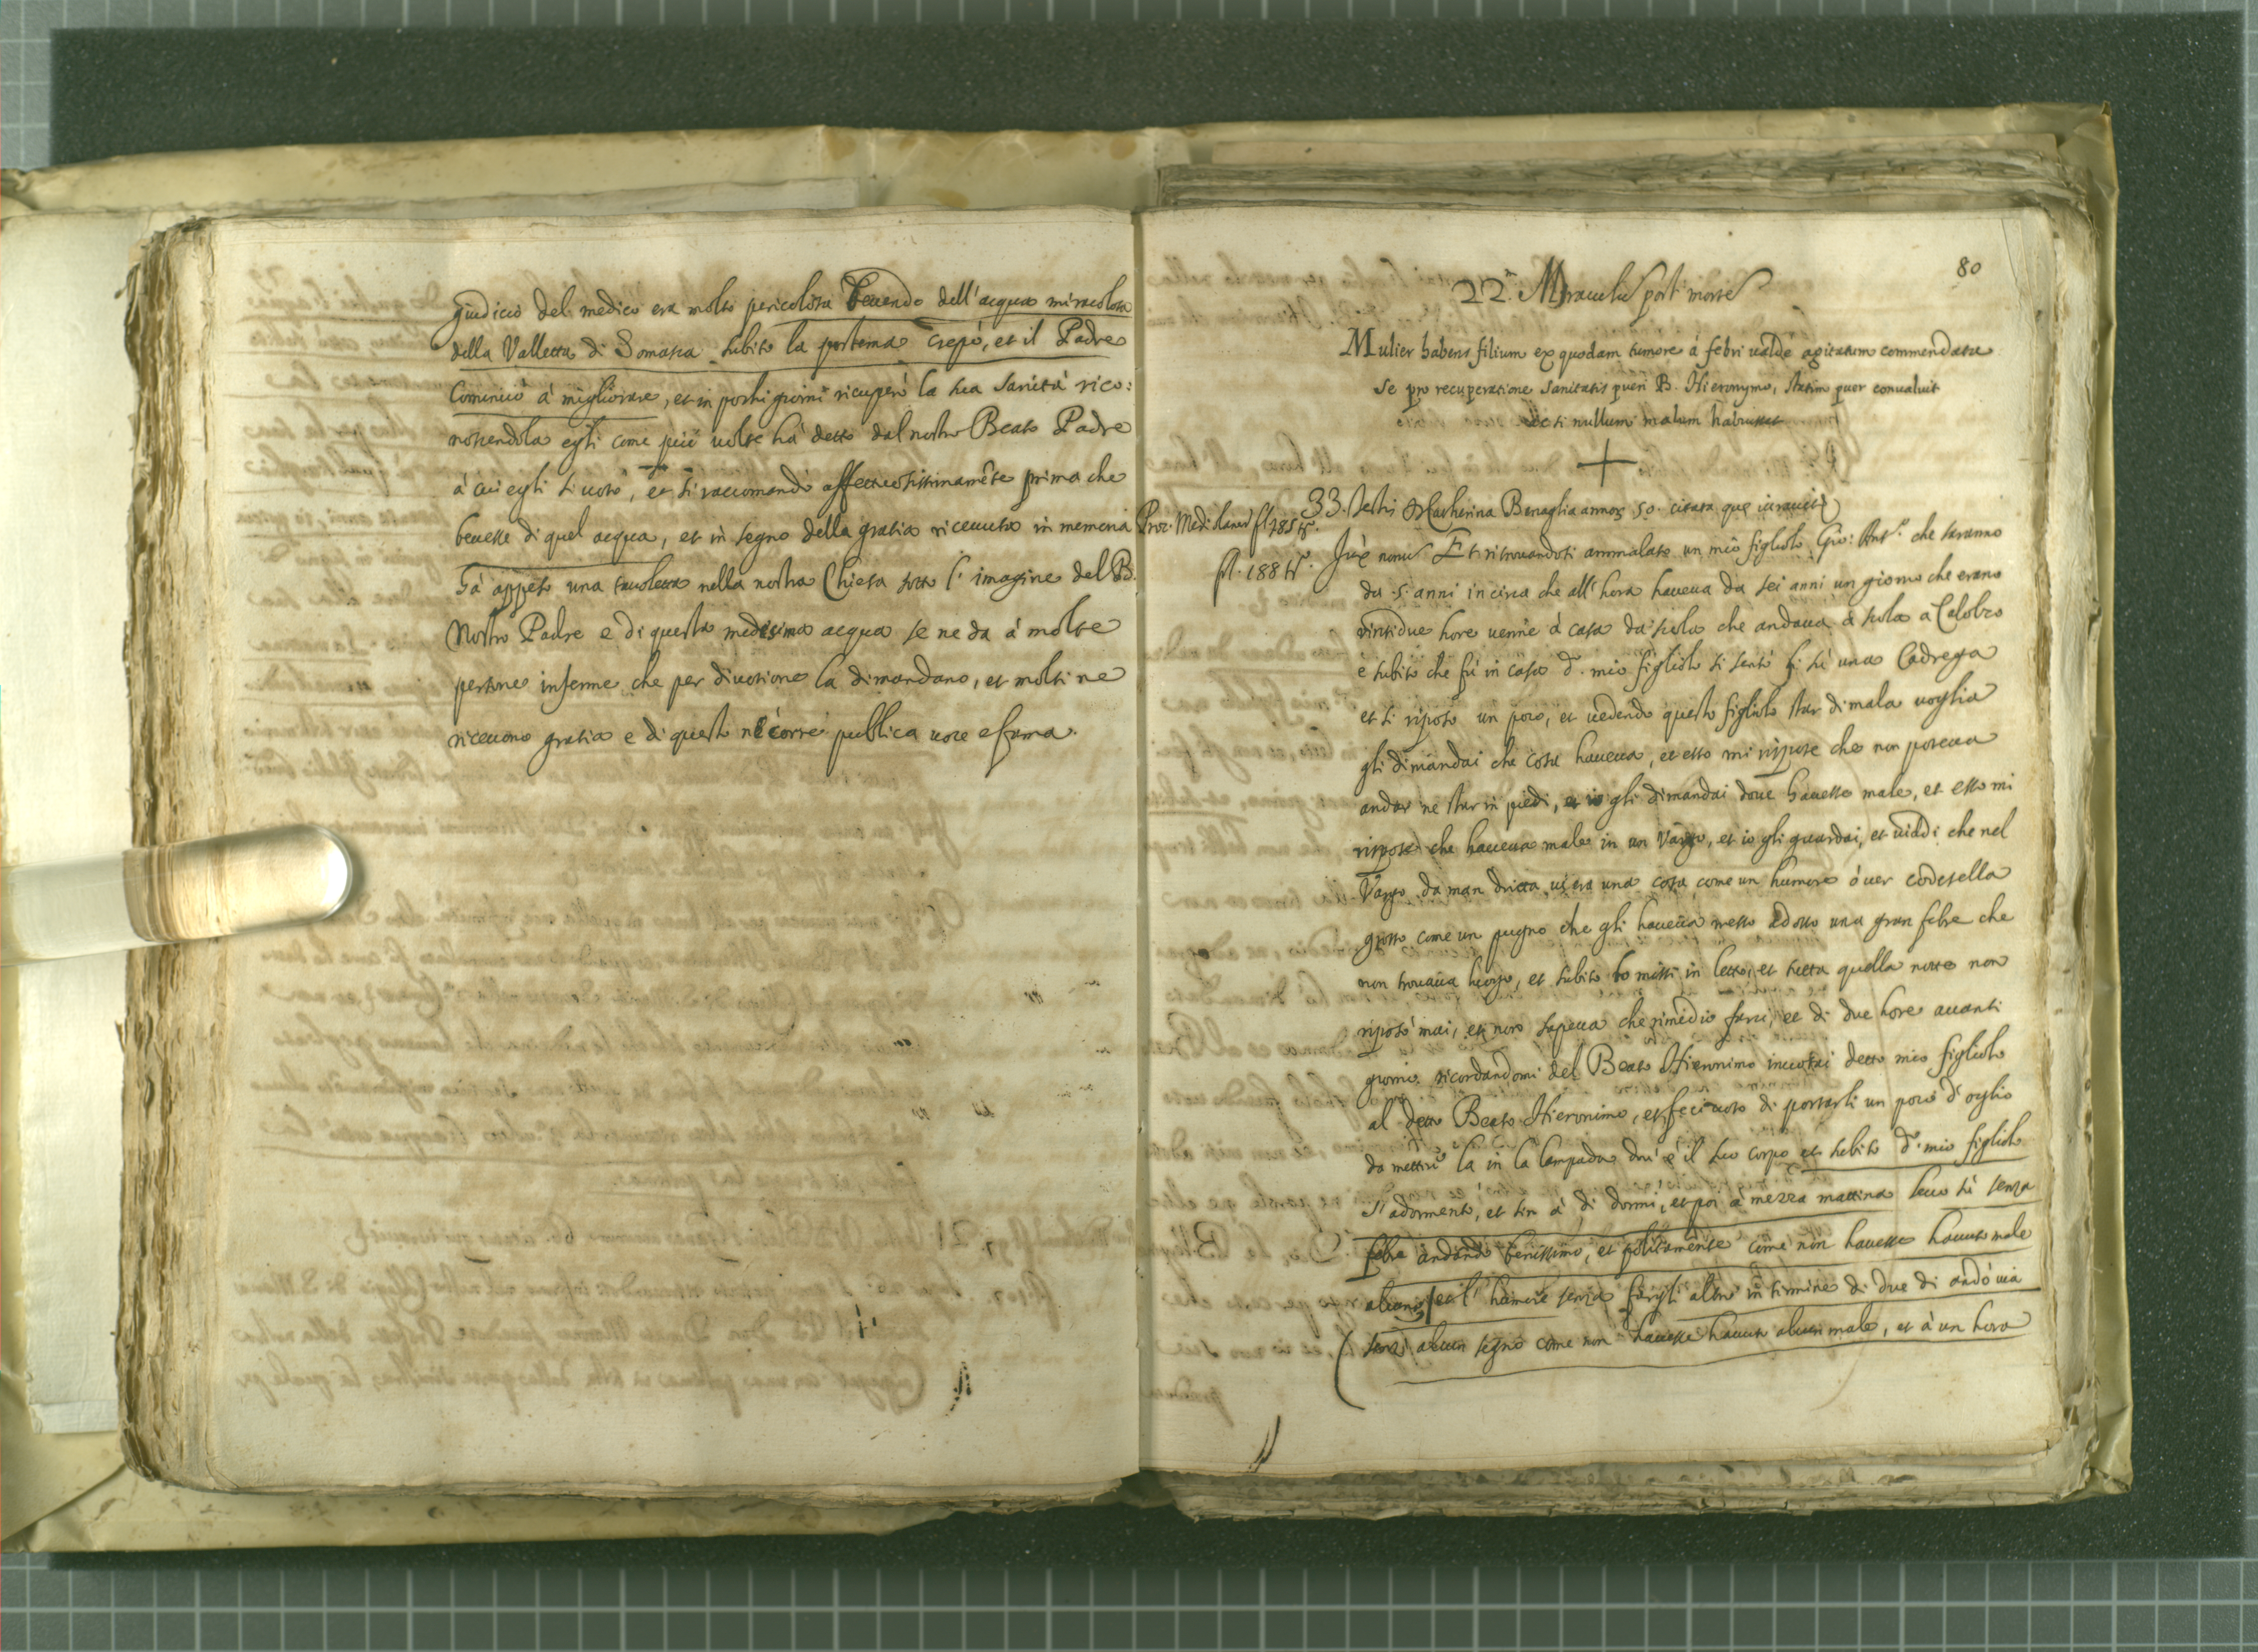 giudicio del medico era molto pericolosa beuendo dell'acqua miracolosa
della Valletta di Somasca subito la postema crepò, et il Padre
Cominciò à migliorare, et in pochi giorni ricuperò la sua sanità rico:
noscendola egli come più uolte hà detto dal nostro Beato Padre
à cui egli si uotò, et si raccomandò affettuosissimamẽte prima che
beuesse di quel acqua, et in segno della gratia riceuuta in memoria
hà appeso una tauoletta nella nostra Chiesa sotto l'imagine del B.
Nostro Padre e di questa medesima acqua se ne da à molte
persone inferme che per diuotione la dimandano, et molti ne
riceuono gratia e di questo ne corre publica uoce e fama.
80
22. Miraculũ post mortẽ
Mulier habens filium ex quodam tumore á febri ualdè agitatum commendata
se pro recuperatione sanitatis pueri B. Hieronymo, statim puer conualuit
ac si nullum malum habuisset
Proc. Mediolanen fl 185
33. Testis Catherina Benaglia annor 50. citata que iurauit
fl. 188
Iux nonũ Et ritrouandosi ammalato un mio figliolo Gio: Ant.º che saranno
da 5. anni in circa che all'hora haueua da sei anni un giorno che erano
vintidue hore uenne à casa da scola che andaua à scola a Calolzo
è subito che fù in casa d.º mio figliolo si sentò sù una Cadrega
et si riposò un poco, et uedendo questo figliolo star di mala uoglia
gli dimandai che cosa haueua, et esso mi rispose che non poteua
andar ne star in piedi, et io gli dimandai doue hauesse male, et esso mi
rispose che haueua male in un Vargo, et io gli guardai, et uiddi che nel
Vargo da man dritta ui era una cosa come un humore ó uer codesella
grosso come un pugno che gli haueua messo adosso una gran febre che
non trouaua luogo, et subito lo missi in letto, et tutta quella notte non
riposò mai, et non sapeua che rimedio farci, et di due hore auanti
giorno ricordandomi del Beato Hieronimo inuotai detto mio figliolo
al detto Beato Hieronimo, et feci uoto di portarli un poco d'oglio
da mettere la in la lampada dou' è il suo corpo et subito d.º mio figliolo
s'adormentò, et sin à dì dormì, et poi à mezza mattina leuò sù senza
febre andando benissimo, et politamente come non hauesse hauuto male
alcuno, et l'humore senza fargli altro in termine di due dì andò uia
senza alcun segno come non hauesse hauuto alcun male, et à un hora